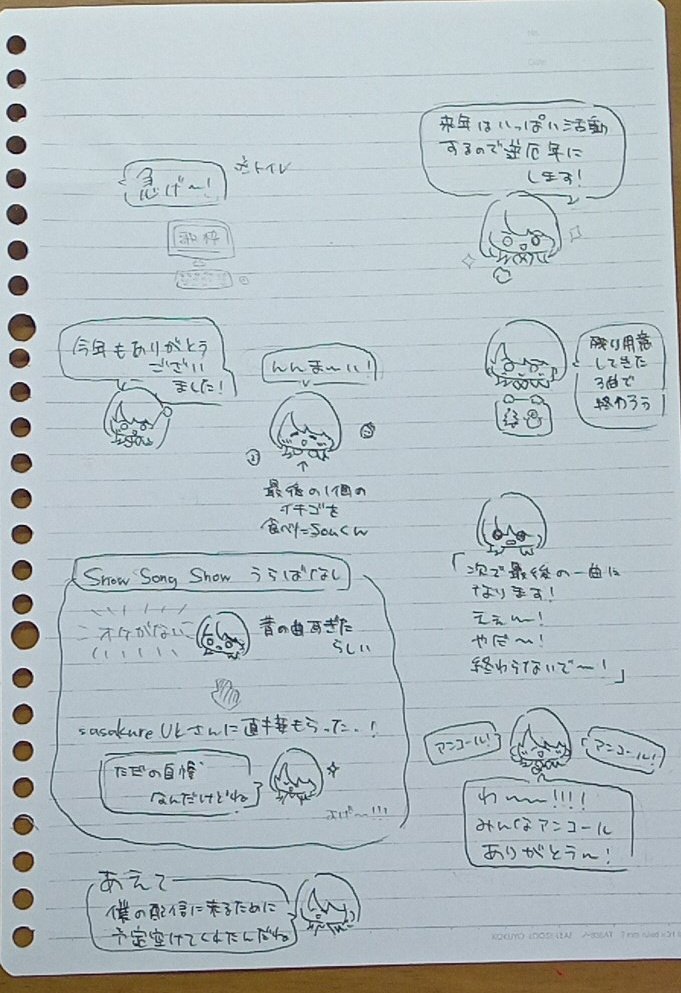 急げ〜!
トイレ
歌枠
今年もありがとう
ござい
ました!
んんま〜い!
最後の1個の
イチゴを
食べたSouくん
Snow Song Show うらばなし
オケがない
昔の曲すぎた
らしい
sasakure.UKさんに直接もらった..!
ただの自慢
なんだけどね
あえて
僕の配信に来るために
予定空けてくれたんだね
来年はいっぱい活動
するので逆厄年に
します!
残り用意
してきた
3曲で
終わろう
「次で最後の一曲に
なります!
ええ〜!
やだ〜!
終わらないで〜!」
アンコール!
アンコール!
わ〜〜!!!!
みんなアンコール
ありがとう〜!